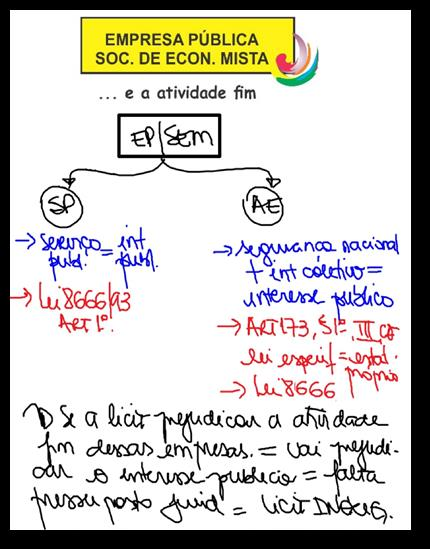 EMPRESA PÚBLICA
SOC. DE ECON. MISTA
... e a atividade fim
EP/SEM
SP
AE
→ serviço = int
públ. públ.
→ Lei 8666/93
ART 1º.
→ segurança nacional
+ int coletivo =
interesse público
→ ART 173, §1º, III, CF
lei específ = estat.
próprio
→ Lei 8666
1) Se a licit prejudicar a atividade
fim dessas empresas. = vai prejudi-
car o interesse público = falta
pressuposto juríd = licit INEXIG.